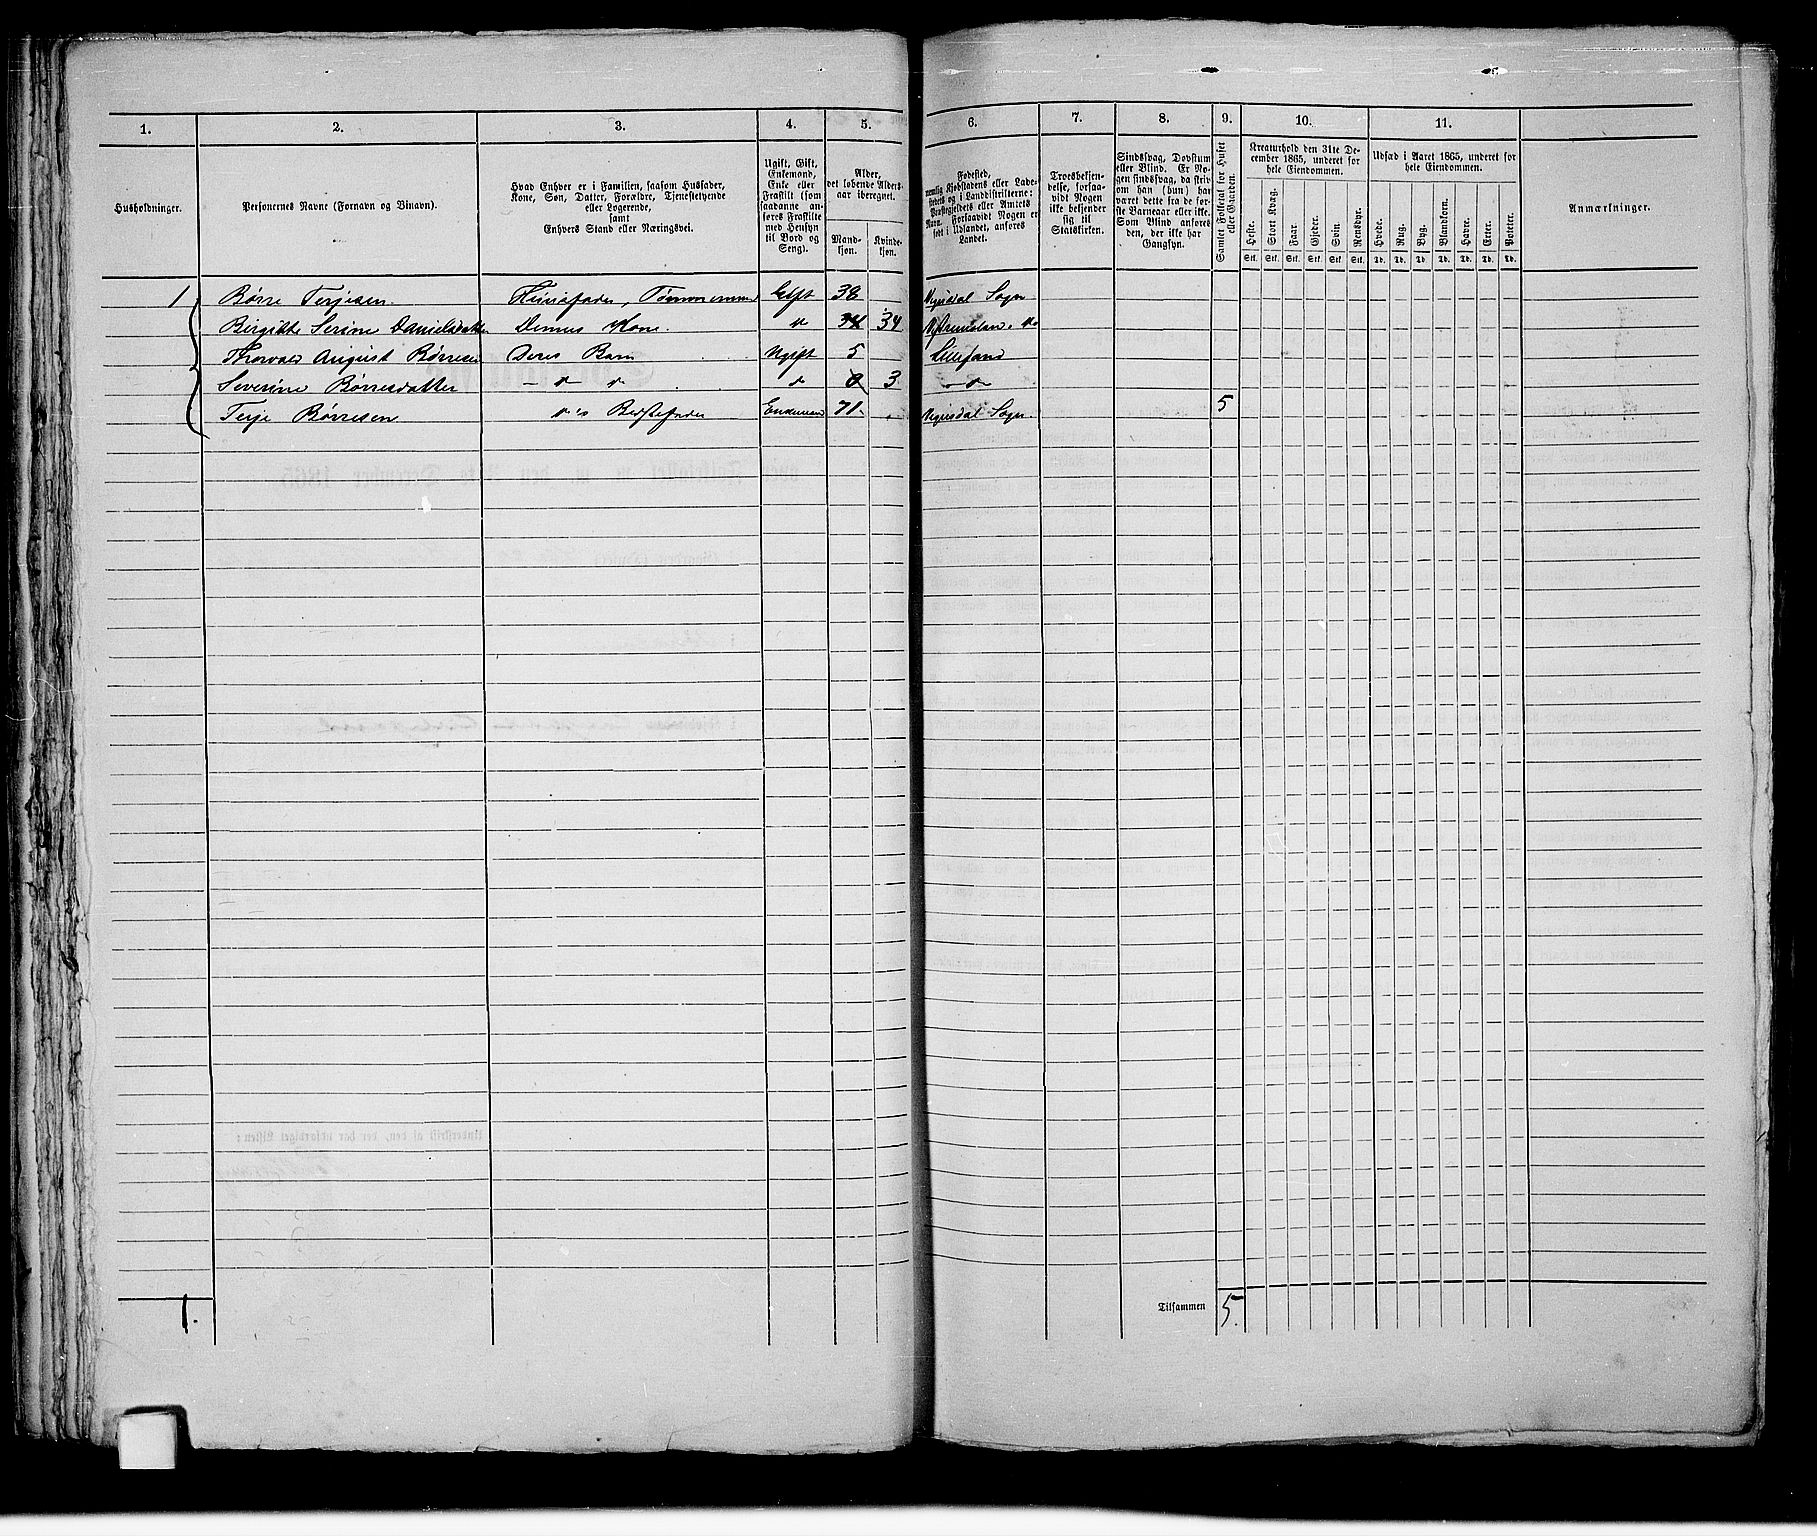 1. 2. 3. 4. 5. 6. 7. 8. 9. 10. 11.
Husholdninger.
Personernes Navne (Fornavn og Binavn).
Hvad Enhver er i Familien, saasom Husfader,
Kone, Søn, Datter, Forældre, Tjenestetyende
eller Logerende,
samt
Enhvers Stand eller Næringsvei.
Ugift, Gift,
Enkemand,
Enke eller
Fraskilt (som
saadanne an-
føres Fraskilte
med Hensyn
til Bord og
Seng).
Alder,
det løbende Alders-
aar iberegnet.
Mand-
kjøn.
Kvinde-
kjøn.
Fødested,
nemlig Kjøbstadens eller Lade-
stedets og i Landdistrikterne:
Præstegjeldets eller Amtets
Navn. Forsaavidt Nogen er
født i Udlandet, anføres
Landet.
Troesbekjen-
delse, forsaa-
vidt Nogen
ikke bekjender
sig til
Statskirken.
Sindssvag, Døvstum
eller Blind. Er No-
gen sindssvag, da skriv
om han (hun) har
været dette fra de før-
ste Barneaar eller ikke.
Som Blind anføres
den, der ikke har
Gangsyn.
Samlet Folketal for Huset
eller Gaarden.
Kreaturhold den 31te De-
cember 1865, underet for
hele Eiendommen.
Heste. Stort Kvæg. Faar. Gjeder. Svin. Rensdyr.
Stk. Stk. Stk. Stk. Stk. Stk.
Udsæd i Aaret 1865, underet for
hele Eiendommen.
Hvede. Rug. Byg. Blandkorn. Havre. Erter. Poteter.
Td. Td. Td. Td. Td. Td. Td.
Anmærkninger.
1 Børre Terjesen Huusfader, Tømmermand Gift 38 Vegusdal Sogn
Birgitte Serine Danielsdatter Dennes Kone " 34 34
Thorvald August Børresen Deres Barn Ugift 5 Lillesand
Severine Børresdatter - " " " 3 - " -
Terje Børresen "'s Bedstefader Enkemand 71 Vegusdal Sogn 5
1. Tilsammen 5.